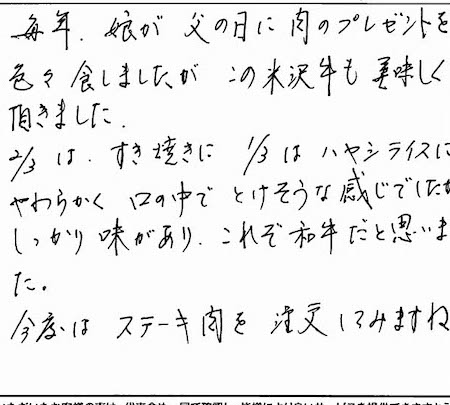 毎年、娘が 父の日に 肉のプレゼントを
色々食しましたが この米沢牛も 美味しく
頂きました。
2/3 は、すき焼きに 1/3 は ハヤシライスに
やわらかく 口の中で とけそうな感じでしたが
しっかり 味があり、これぞ 和牛だと思いま
た。
今度は ステーキ肉を 注文してみますね